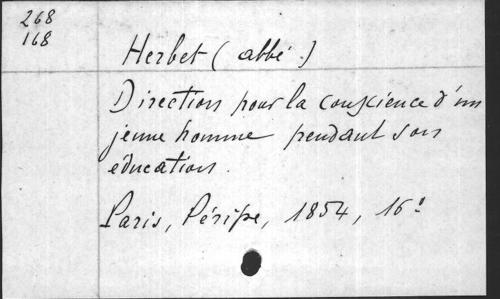 268
168
Herbet (abbé.)
Direction pour la conscience d'un
jeune homme pendant son
éducation.
Paris, Périsse, 1854, 16º